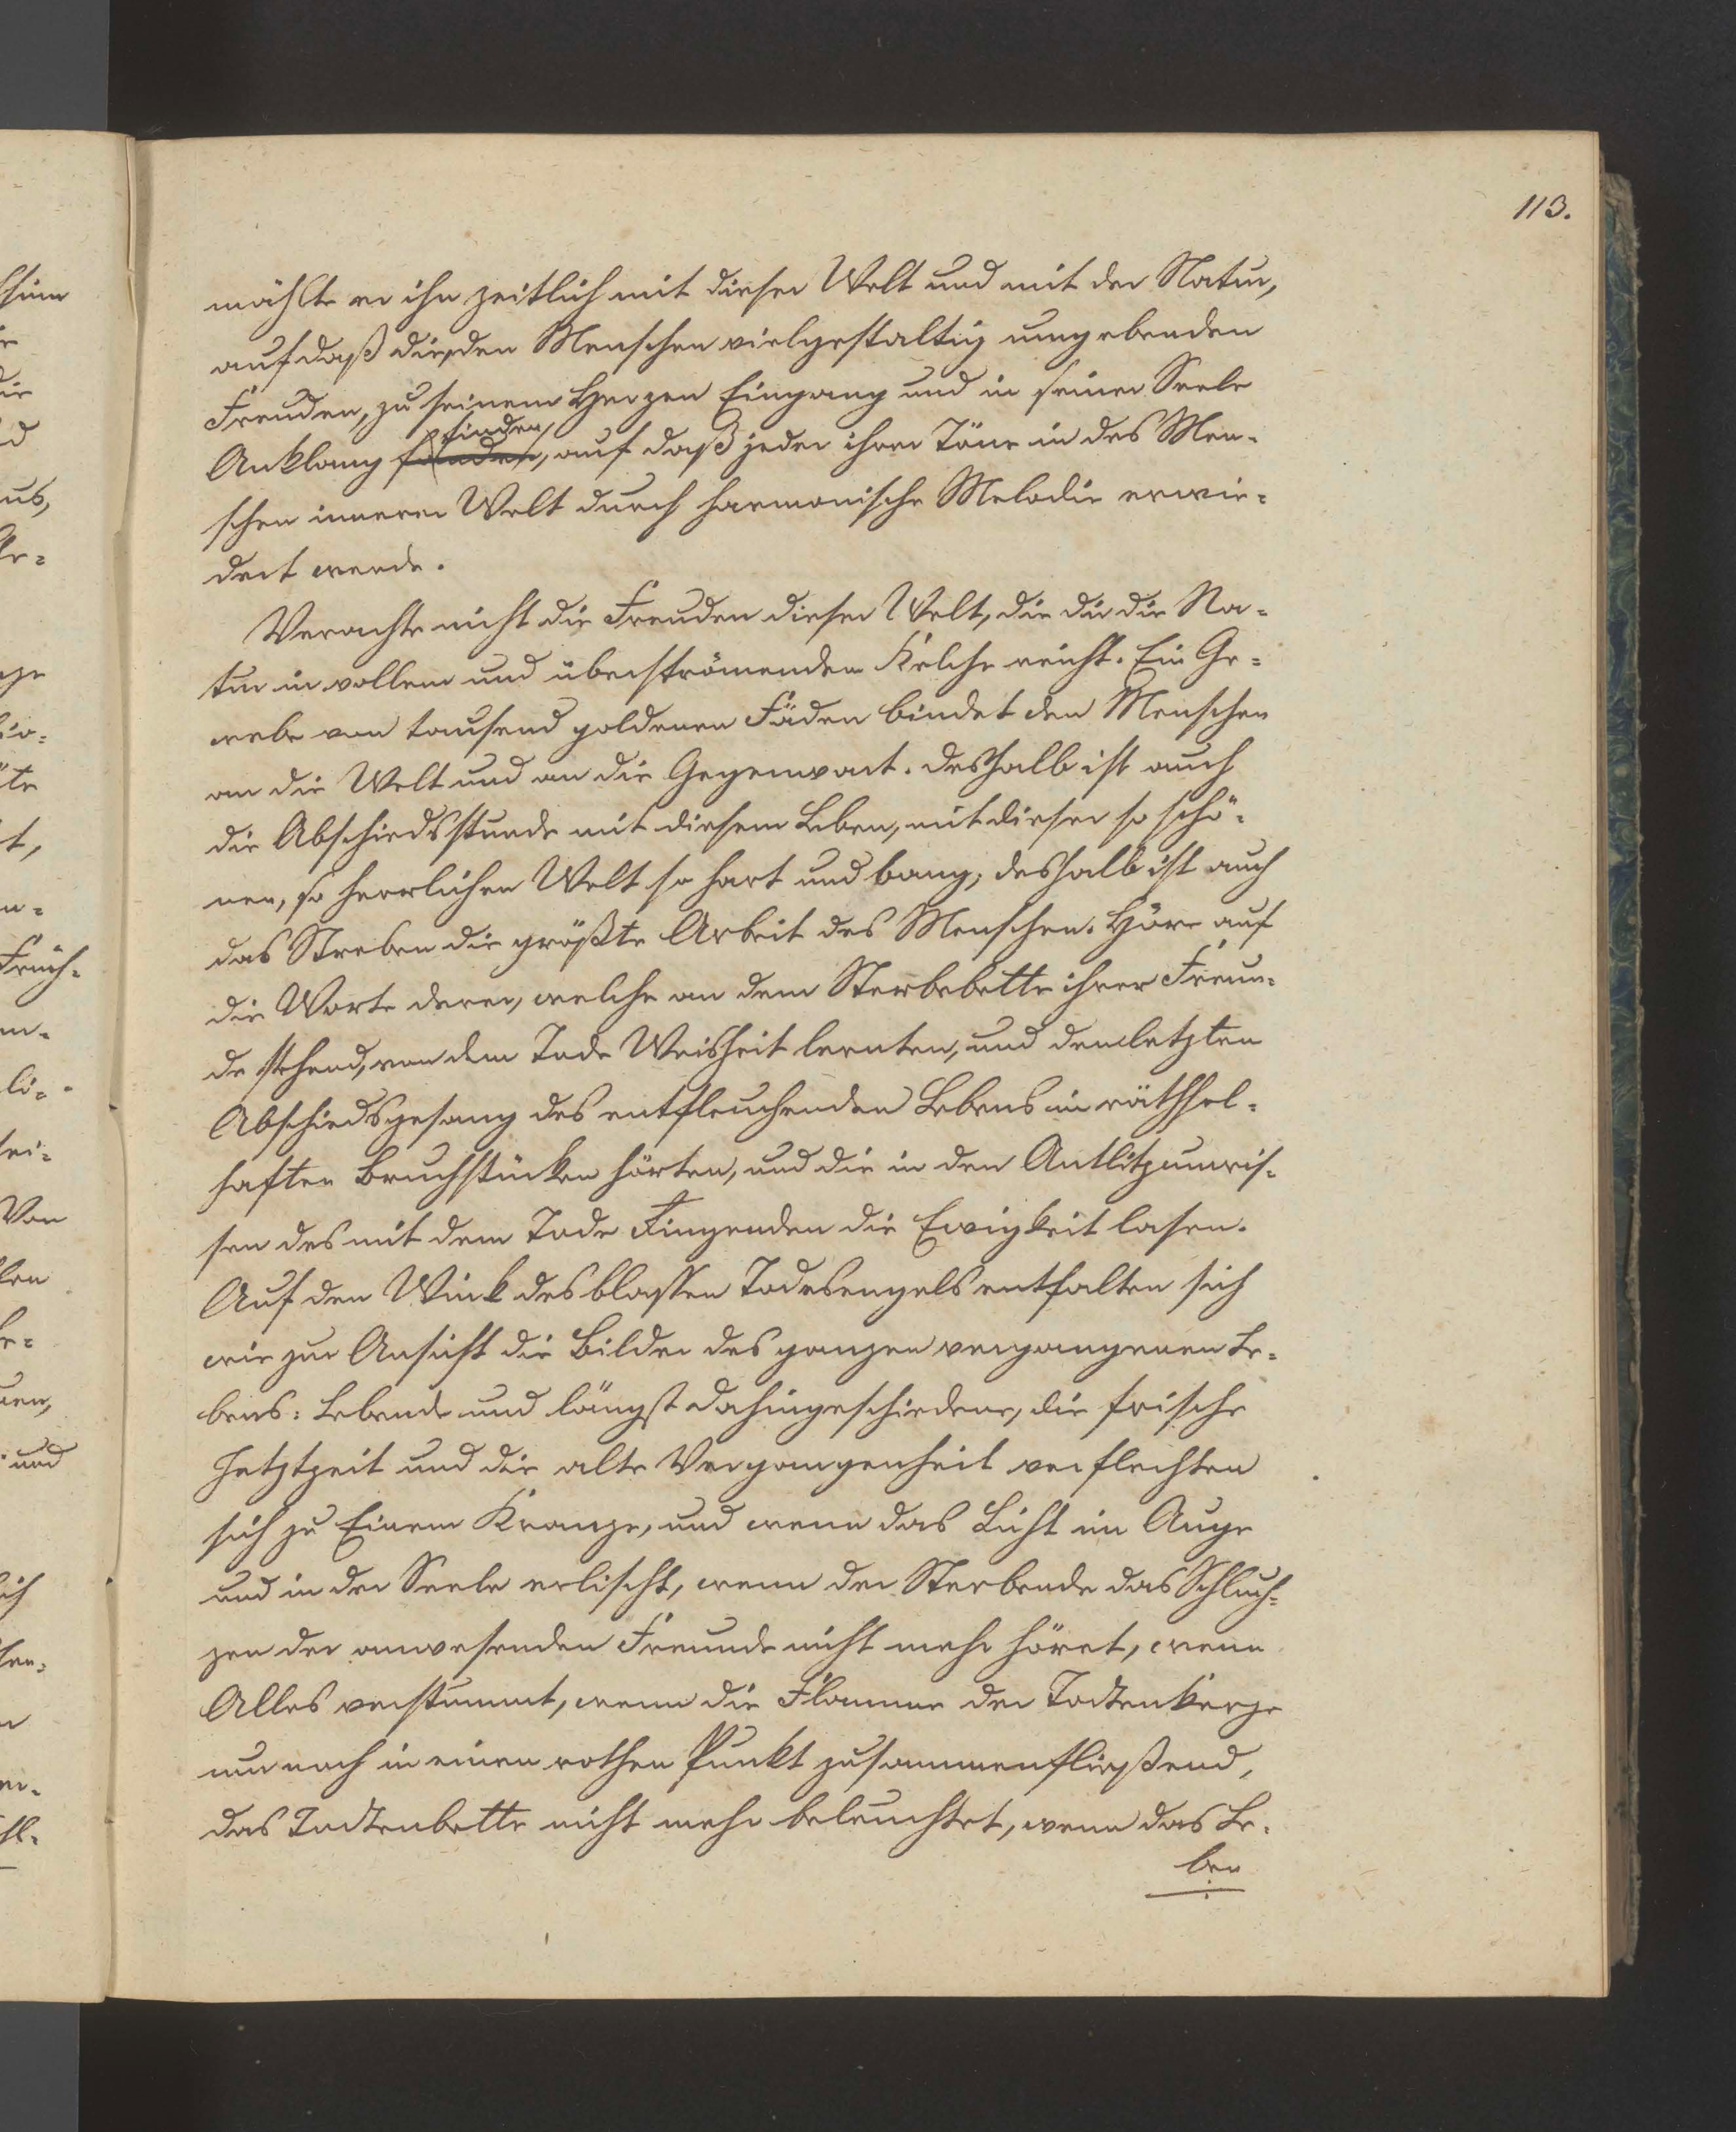 113.
mählte er ihn zeitlich mit dieser Welt und mit der Natur,
auf daß die, den Menschen vielgestaltig umgebenden
Freuden, zu seinem Herzen Eingang und in seiner Seele
finden,
Anklang fänden, auf daß jeder ihrer Töne in des Men-
schen innerer Welt durch harmonische Melodie erwie-
dert werde.
Verachte nicht die Freuden dieser Welt, die dir die Na-
tur in vollem und überströmendem Kelche reicht. Ein Ge-
webe von tausend goldenen Fäden bindet den Menschen
an die Welt und an die Gegenwart. deßhalb ist auch
die Abschiedsstunde mit diesem Leben, mit dieser so schö-
nen, so herrlichen Welt so hart und bang, deshalb ist auch
das Streben die größte Arbeit des Menschen. Höre auf
die Worte derer, welche an dem Sterbebette ihrer Freun-
de stehend, von dem Tode Weisheit lernten, und den letzten
Abschiedsgesang des entfleuchenden Lebens in räthsel-
haften Bruchstücken hörten, und die in den Antlitzumris-
sen des mit dem Tode Ringenden die Ewigkeit lasen.
Auf den Wink des blassen Todesengels entfalten sich
wie zur Ansicht die Bilder des ganzen vergangenen Le-
bens: Lebende und längst dahingeschiedene, die frische
Jetztzeit und die alte Vergangenheit verflechten
sich zu Einem Kranze, und wenn das Licht im Auge
und in der Seele erlischt, wenn der Sterbende das Schluch-
zen der anwesenden Freunde nicht mehr höret, wenn
Alles verstummt, wenn die Flamme der Todtenkerze
nur noch in einen rothen Punkt zusammenfließend,
das Todtenbette nicht mehr beleuchtet, wenn das Le-
ben